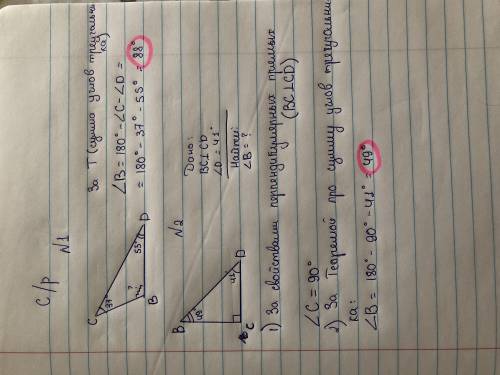 С/р
N1
За Т (сумма углов треугольни
ка)
C
37°
?
55°
B
D
∠B = 180° - ∠C - ∠D =
= 180° - 37° - 55° = 88°
N2
B
49
41°
C
D
Дано:
BC⊥CD
∠D = 41°
Найти:
∠B = ?
1) За свойствами перпендикулярных прямых
(BC⊥CD)
∠C = 90°
2) За Теоремой про сумму углов треугольни
ка:
∠B = 180° - 90° - 41° = 49°